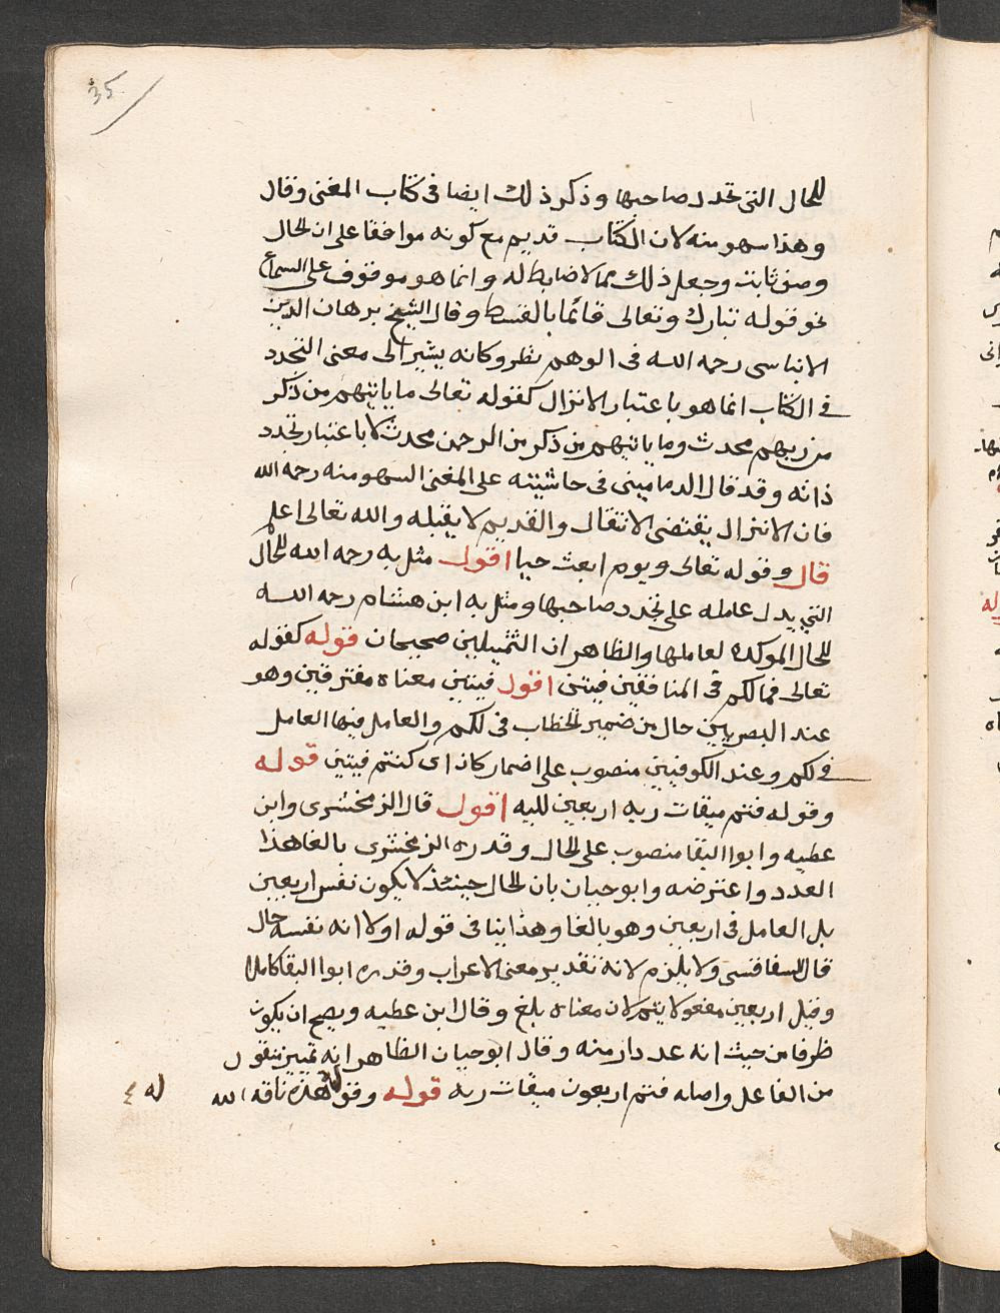 35
للحال التى تجدد صاحبها وذكر ذلك ايضا فى كتاب المغنى وقال
وهذا سهو منه لان الكتاب قديم مع كونه موافقا على ان الحال
وصف ثابت وجعل ذلك مما لا ضابط له وانما هو موقوف على السماع
نحو قوله تبارك وتعالى قائما بالقسط وقال الشيخ برهان الدين
الانباسى رحمه الله فى الوهم نظر وكانه يشير الى معنى التجدد
فى الكتاب انما هو باعتبار الانزال كقوله تعالى ما ياتيهم من ذكر
من ربهم محدث وما ياتيهم من ذكر من الرحمن محدث لا باعتبار تجدد
ذاته وقد قال الدمامينى فى حاشيته على المغنى السهو منه رحمه الله
فان الانزال يقتضى الانتقال والقديم لا يقبله والله تعالى اعلم
قال وقوله تعالى ويوم ابعث حيا اقول مثل به رحمه الله للحال
التى يدل عامله على تجدد صاحبها ومثل به ابن هشام رحمه الله
للحال الموكده لعاملها والظاهر ان التمثيلين صحيحان قوله كقوله
تعالى فمالكم فى المنافقين فيتين اقول فيتين معناه مفترقين وهو
عند البصريين حال من ضمير الخطاب فى لكم والعامل فيها العامل
فى لكم وعند الكوفيين منصوب على اضمار كان اى كنتم فيتين قوله
وقوله فتم ميقات ربه اربعين لليه اقول قال الزمخشرى وابن
عطيه وابوا البقا منصوب على الحال وقدره الزمخشرى بالغا هذا
العدد واعترضه وابوحيان بان الحال حينئذ لا يكون نفس اربعين
بل العامل فى اربعين وهو بالغا وهذا ينافى قوله اولا انه نفسه حال
قال السفاقسى ولا يلزم لانه تقدير معنى لا اعراب وقدره ابوا البقا كاملة
وقيل اربعين مفعولا يتم لان معناه بلغ وقال ابن عطيه ويصح ان يكون
ظرفا من حيث انه عدد ازمنه وقال ابو حيان الظاهر انه تمييز منقول
من الفاعل واصله فتم اربعون ميقات ربه قوله وقوله هذه ناقه الله